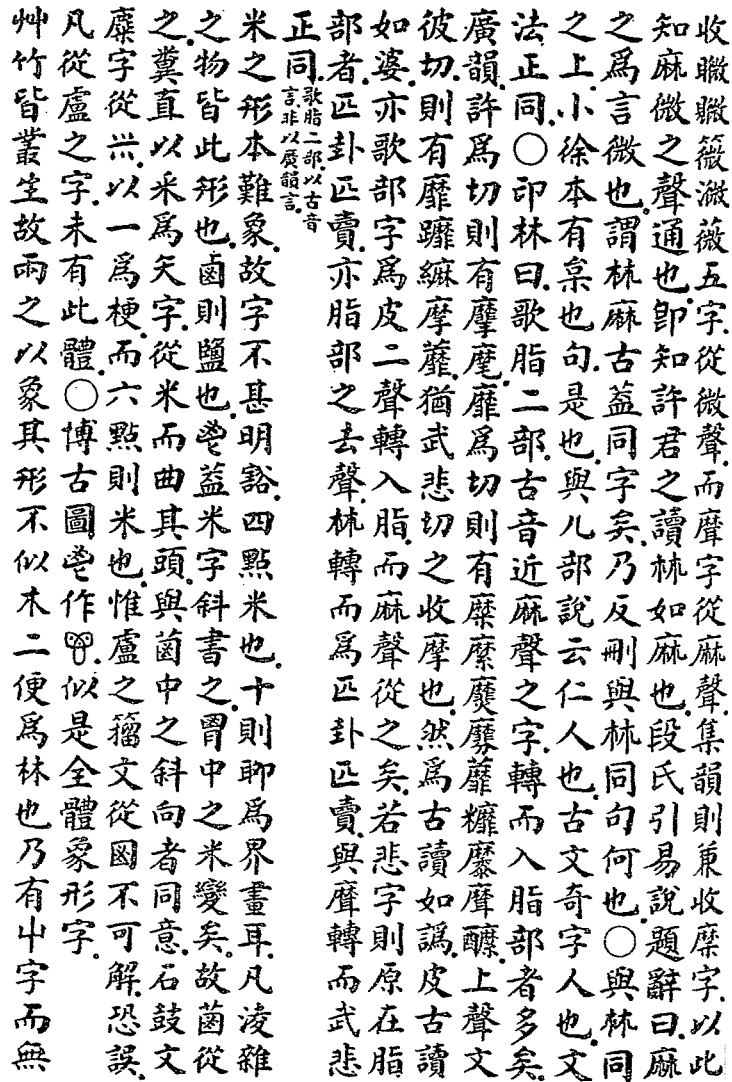 收矀矀䉠溦薇五字從微聲而䕷字從麻聲集韻則兼收穈字以此
知麻微之聲通也卽知許君之讀𣏟如麻也段氏引易說題辭曰麻
之爲言微也謂𣏟麻古蓋同字矣乃反刪與𣏟同句何也〇與𣏟同
之上小徐本有枲也句是也與儿部說云仁人也古文奇字人也文
法正同〇印林曰歌脂二部古音近麻聲之字轉而入脂部者多矣
廣韻許爲切則有靡爲切則有糜縻蘼醿上聲文
彼切則有靡躃摩蘼猶武悲切之收摩也然爲古讀如譌皮古讀
如婆亦歌部字爲皮二聲轉入脂而麻聲從之矣若悲字則原在脂
部者匹卦匹賣亦脂部之去聲𣏟轉而爲匹卦匹賣與䕷轉而武悲
正同歌脂二部以古音言非以廣韻言
米之形本難象故字不甚明豁四點米也十則聊爲界畫耳凡淩雜
之物皆此形也鹵則鹽也鬯蓋米字斜書之胃中之米變矣故菌從
之糞直以釆爲矢字從米而曲其頭與菌中之斜向者同意石鼓文
麋字從𣥂以一爲梗而六點則米也惟盧之籀文從囦不可解恐誤
凡從盧之字未有此體〇博古圖鬯作似是全體象形字
艸竹皆叢生故兩之以象其形不似木二便爲林也乃有屮字而無